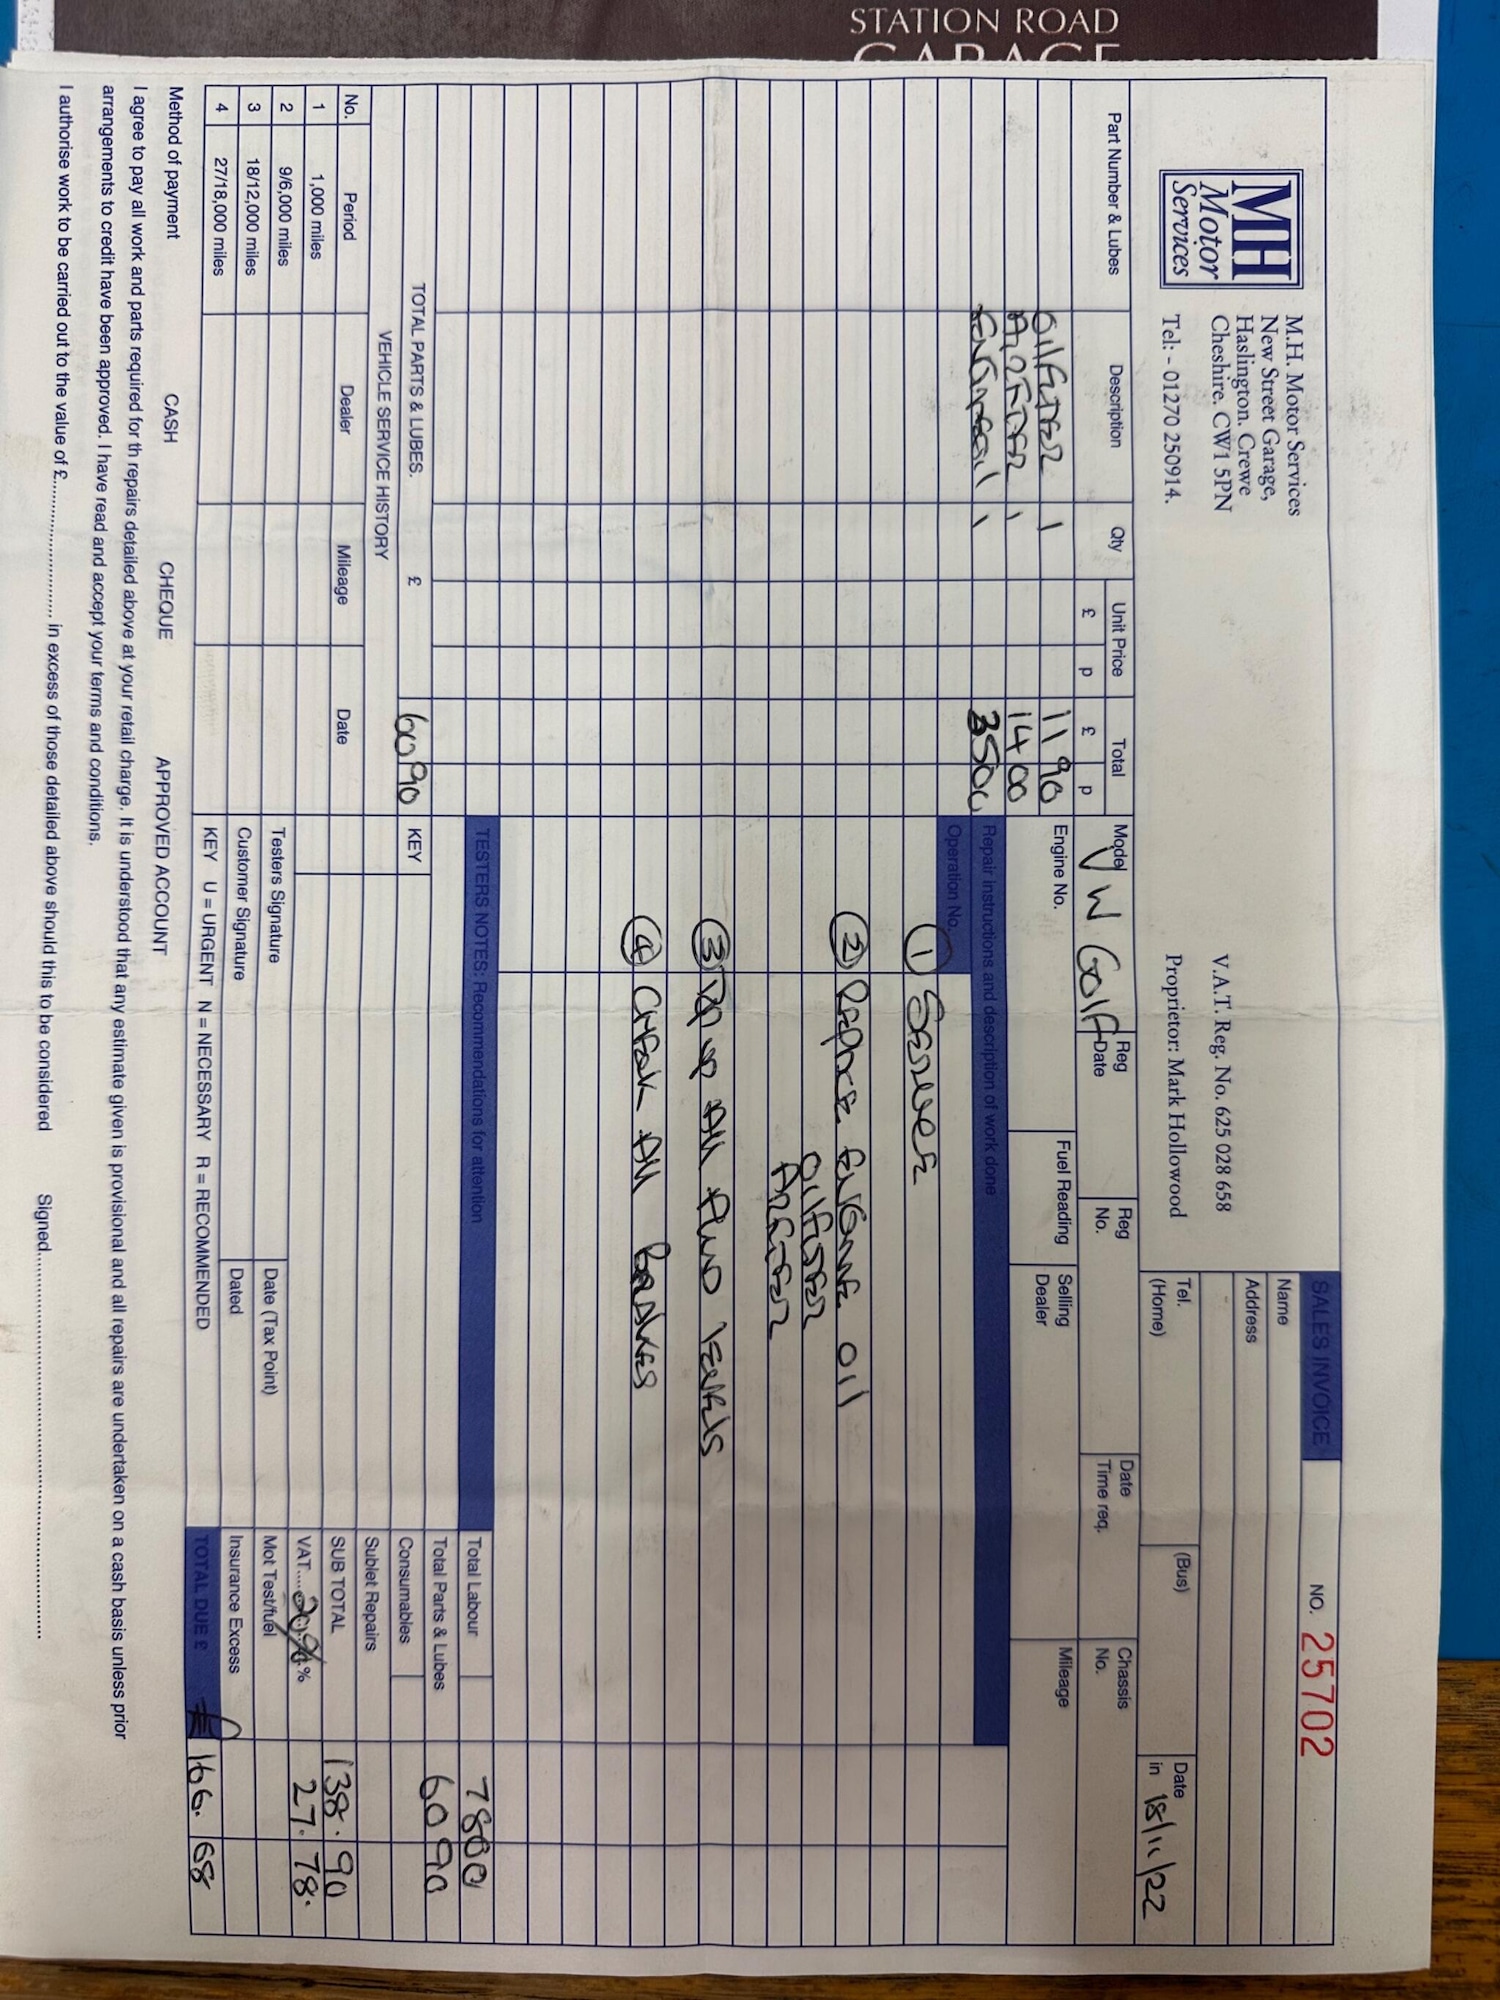 STATION ROAD
GARAGE
MH
Motor
Services
M.H. Motor Services
New Street Garage,
Haslington. Crewe
Cheshire. CW1 5PN
Tel: - 01270 250914.
V.A.T. Reg. No. 625 028 658
Proprietor: Mark Hollowood
SALES INVOICE NO. 25702
Name
Address
Tel. (Home) (Bus) Date in 18/11/22
Part Number & Lubes Description Qty Unit Price £ p Total £ p
Model VW Golf Reg Date Reg No. Date Time req. Chassis No.
Engine No. Fuel Reading Selling Dealer Mileage
Oil Filter 1 11 90
Air Filter 1 14 00
Engine oil 1 35 00
Repair instructions and description of work done
Operation No.
① Service
② Replace Engine Oil
Oil Filter
Air Filter
③ Top up All Fluid levels
④ Check All Brakes
TESTERS NOTES: Recommendations for attention
TOTAL PARTS & LUBES. £ 60 90
KEY
VEHICLE SERVICE HISTORY
No. Period Dealer Mileage Date
1 1,000 miles
2 9/6,000 miles
3 18/12,000 miles
4 27/18,000 miles
Testers Signature Date (Tax Point)
Customer Signature Dated
KEY U = URGENT N = NECESSARY R = RECOMMENDED
Total Labour 78 00
Total Parts & Lubes 60 90
Consumables
Sublet Repairs
SUB TOTAL 138.90
VAT.....20%.% 27.78.
Mot Test/fuel
Insurance Excess
TOTAL DUE £ £ 166.68
Method of payment CASH CHEQUE APPROVED ACCOUNT
I agree to pay all work and parts required for th repairs detailed above at your retail charge. It is understood that any estimate given is provisional and all repairs are undertaken on a cash basis unless prior
arrangements to credit have been approved. I have read and accept your terms and conditions.
I authorise work to be carried out to the value of £.......................... in excess of those detailed above should this to be considered Signed..........................................................